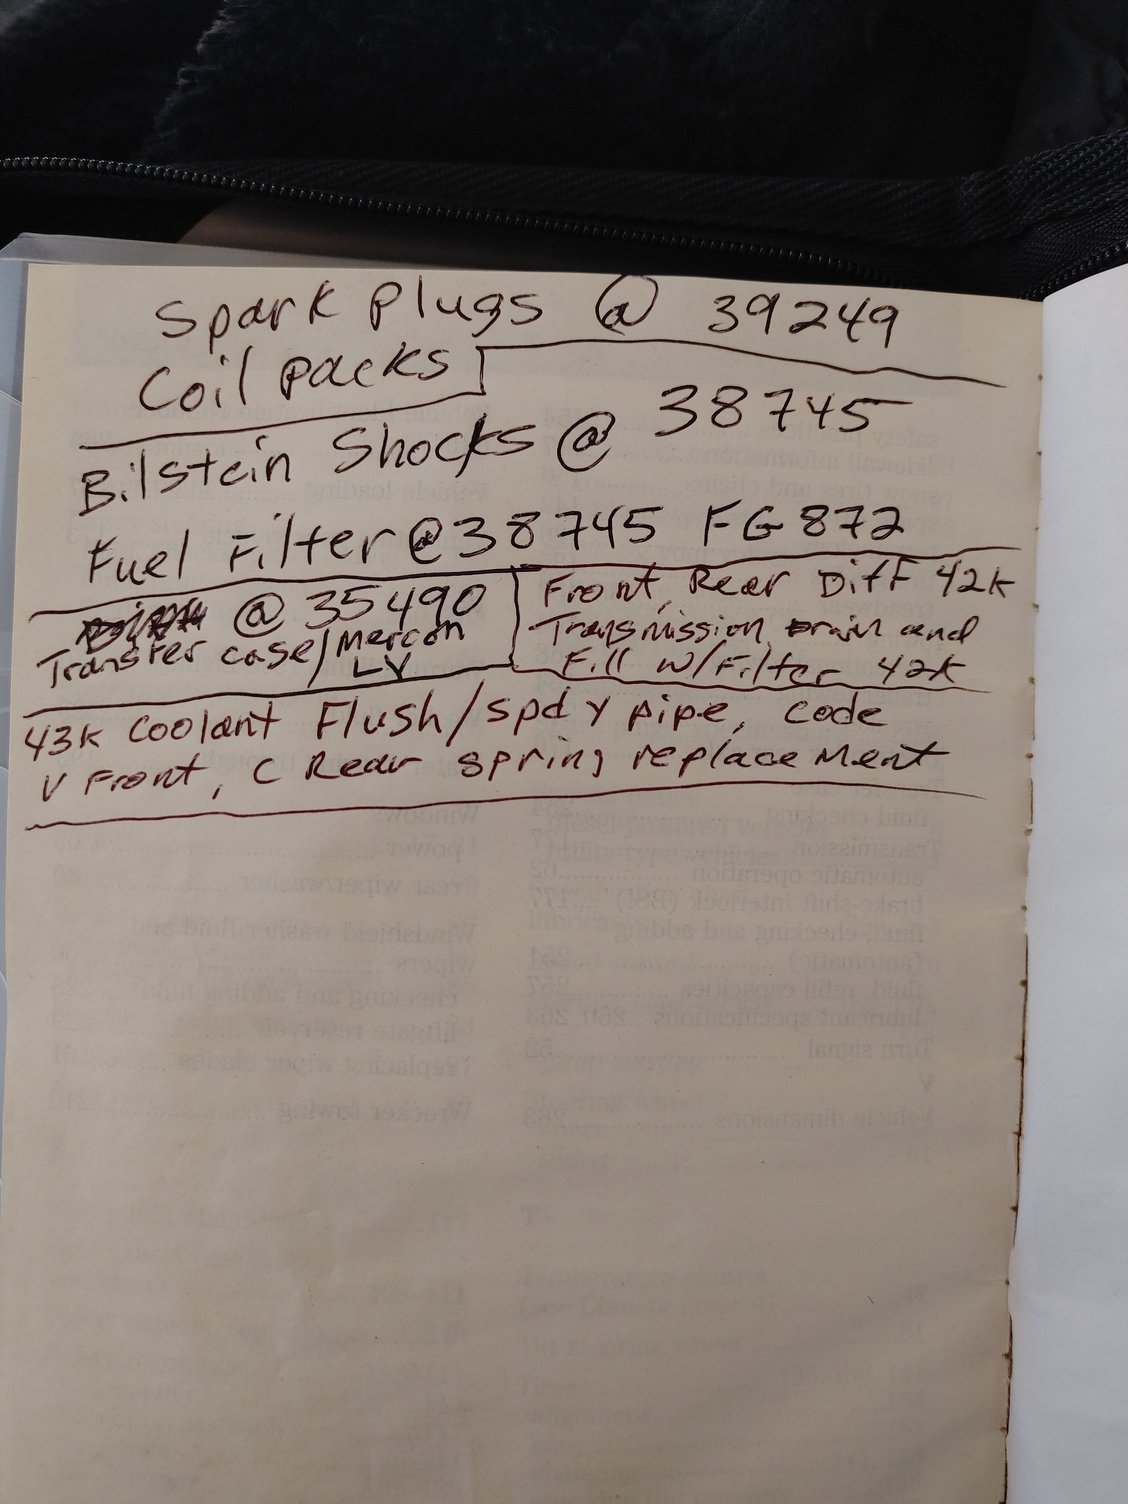 Spark Plugs @ 39249
Coil packs
Bilstein Shocks @ 38745
Fuel Filter @ 38745 FG872
@ 35490
Transfer case/Mercon
LV
Front, Rear Diff 42k
Transmission Drain and
Fill w/Filter 42k
43k Coolant Flush/spdy pipe, code
V Front, C Rear spring replacement